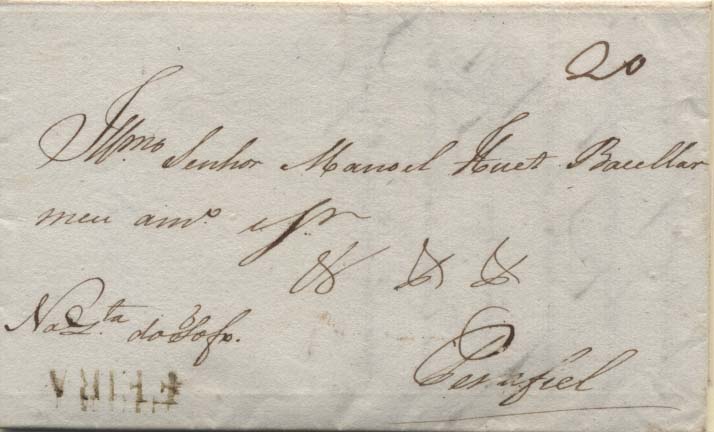 20
Illmo Senhor Manoel Huet Bacellar
meu amo. e Sr.
&c &c &c
Na Qta. do
Penafiel
FEIRA